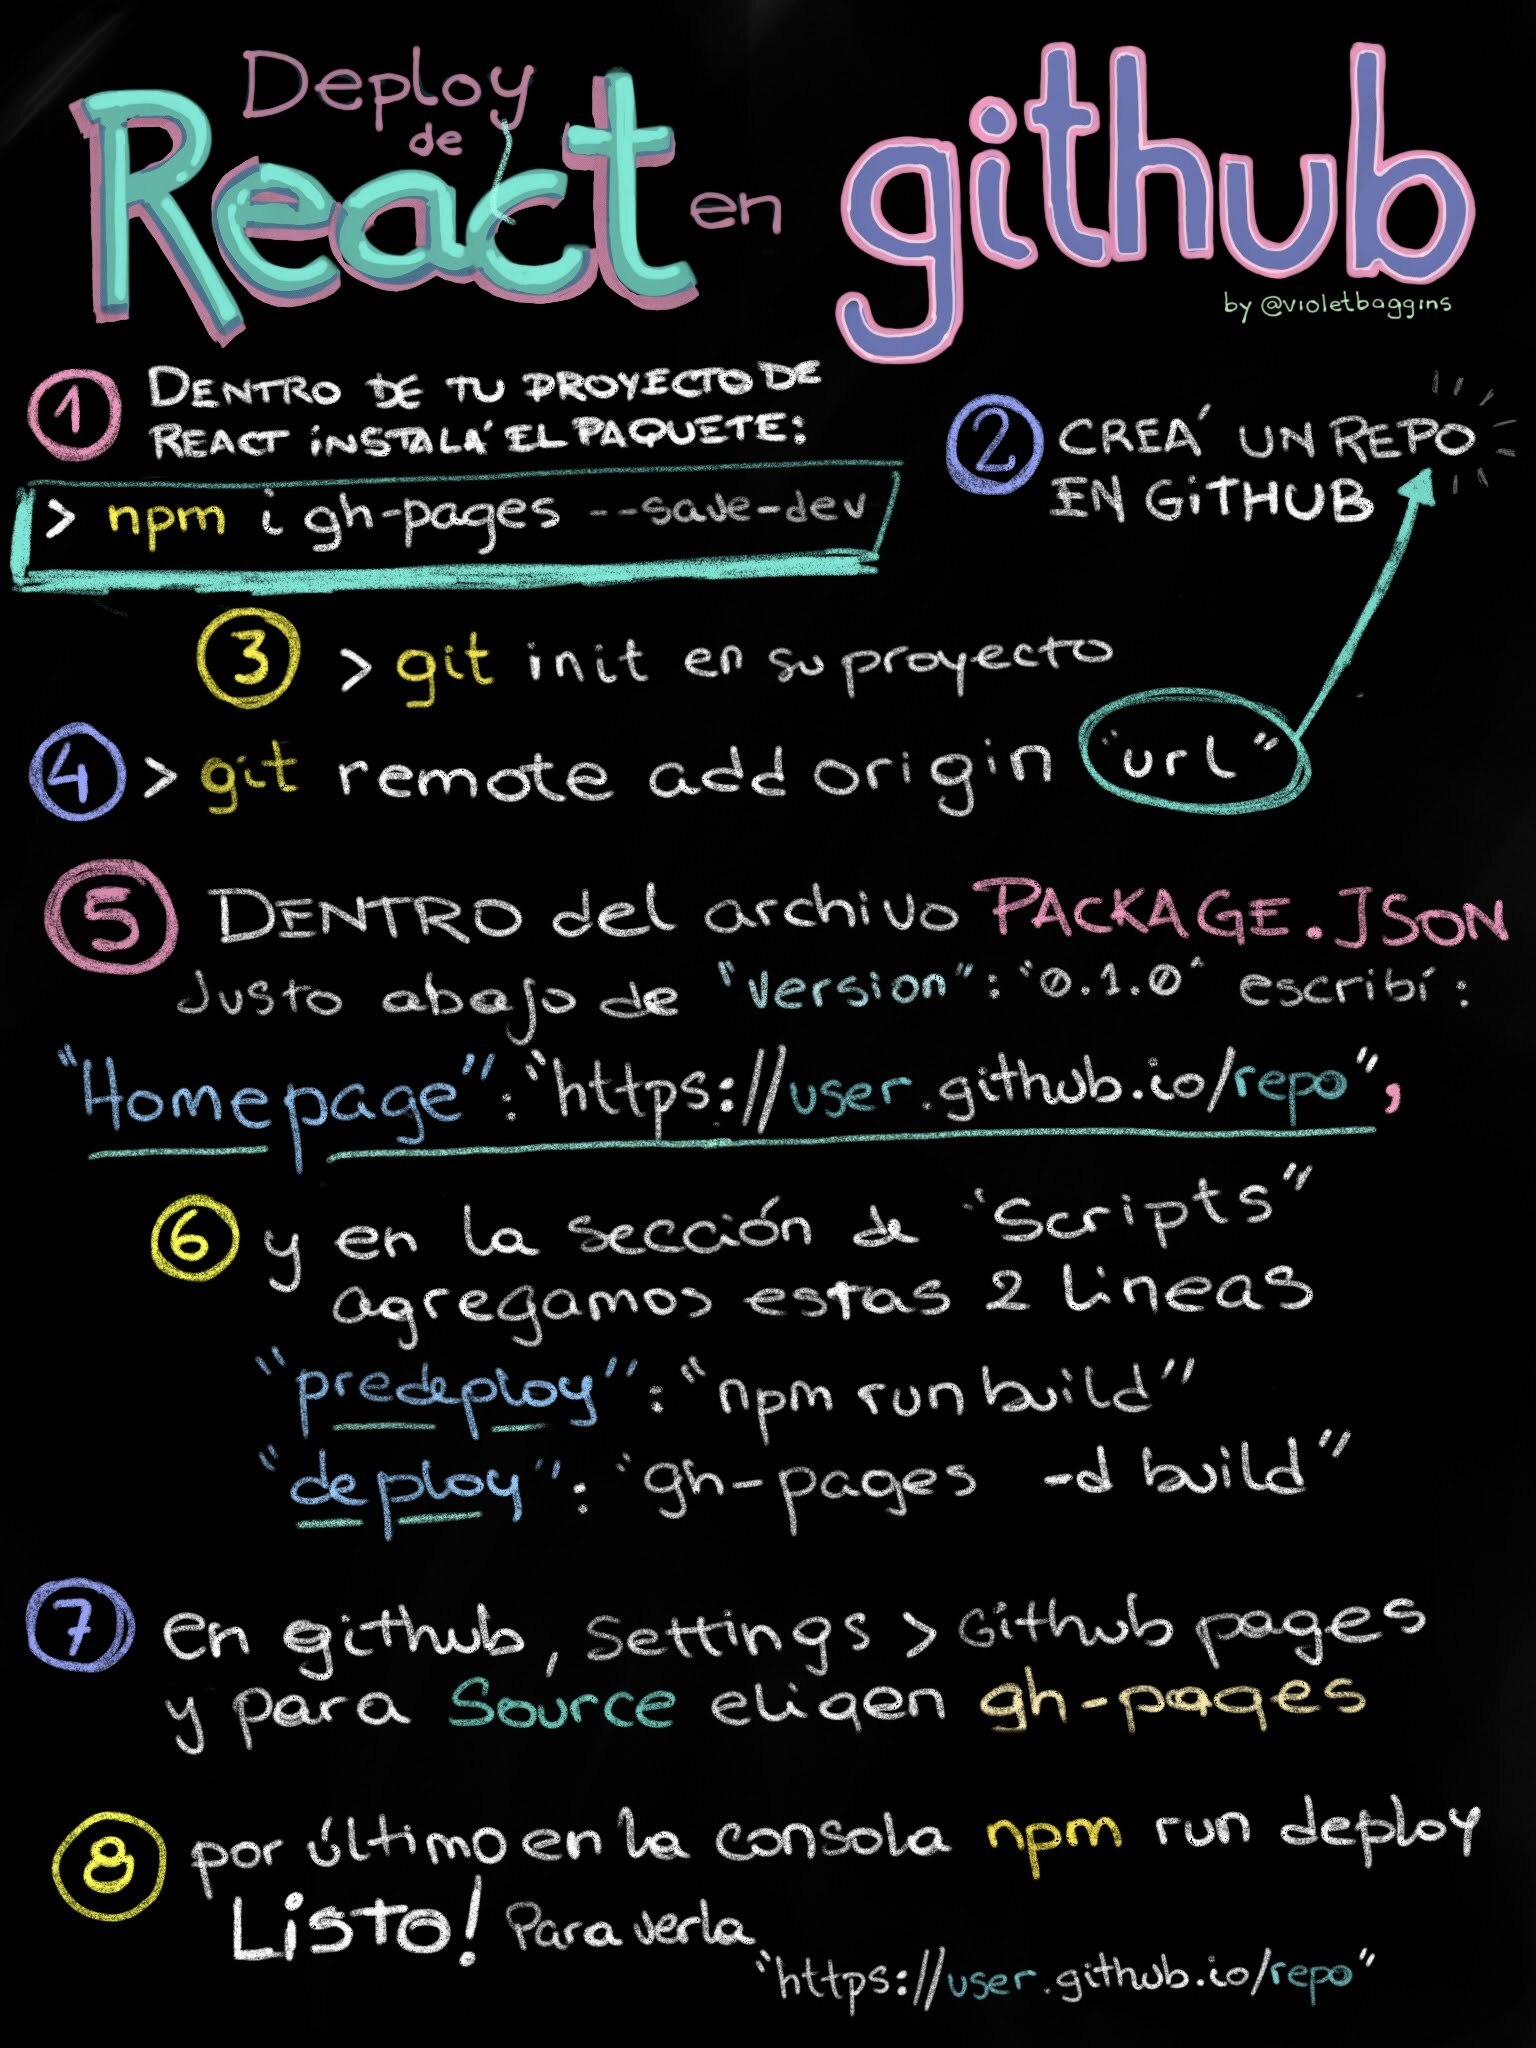 Deploy
de
React en github
by @violetbaggins
1 DENTRO DE TU PROYECTO DE
REACT INSTALÁ EL PAQUETE:
> npm i gh-pages --save-dev
2 CREÁ UN REPO
EN GITHUB
3 > git init en su proyecto
4 > git remote add origin "url"
5 DENTRO del archivo PACKAGE.JSON
Justo abajo de "version": "0.1.0" escribí:
"Homepage": "https://user.github.io/repo",
6 y en la sección de "Scripts"
agregamos estas 2 lineas
"predeploy": "npm run build"
"deploy": "gh-pages -d build"
7 en github, Settings > Github pages
y para Source eligen gh-pages
8 por último en la consola npm run deploy
Listo! Para verla
"https://user.github.io/repo"